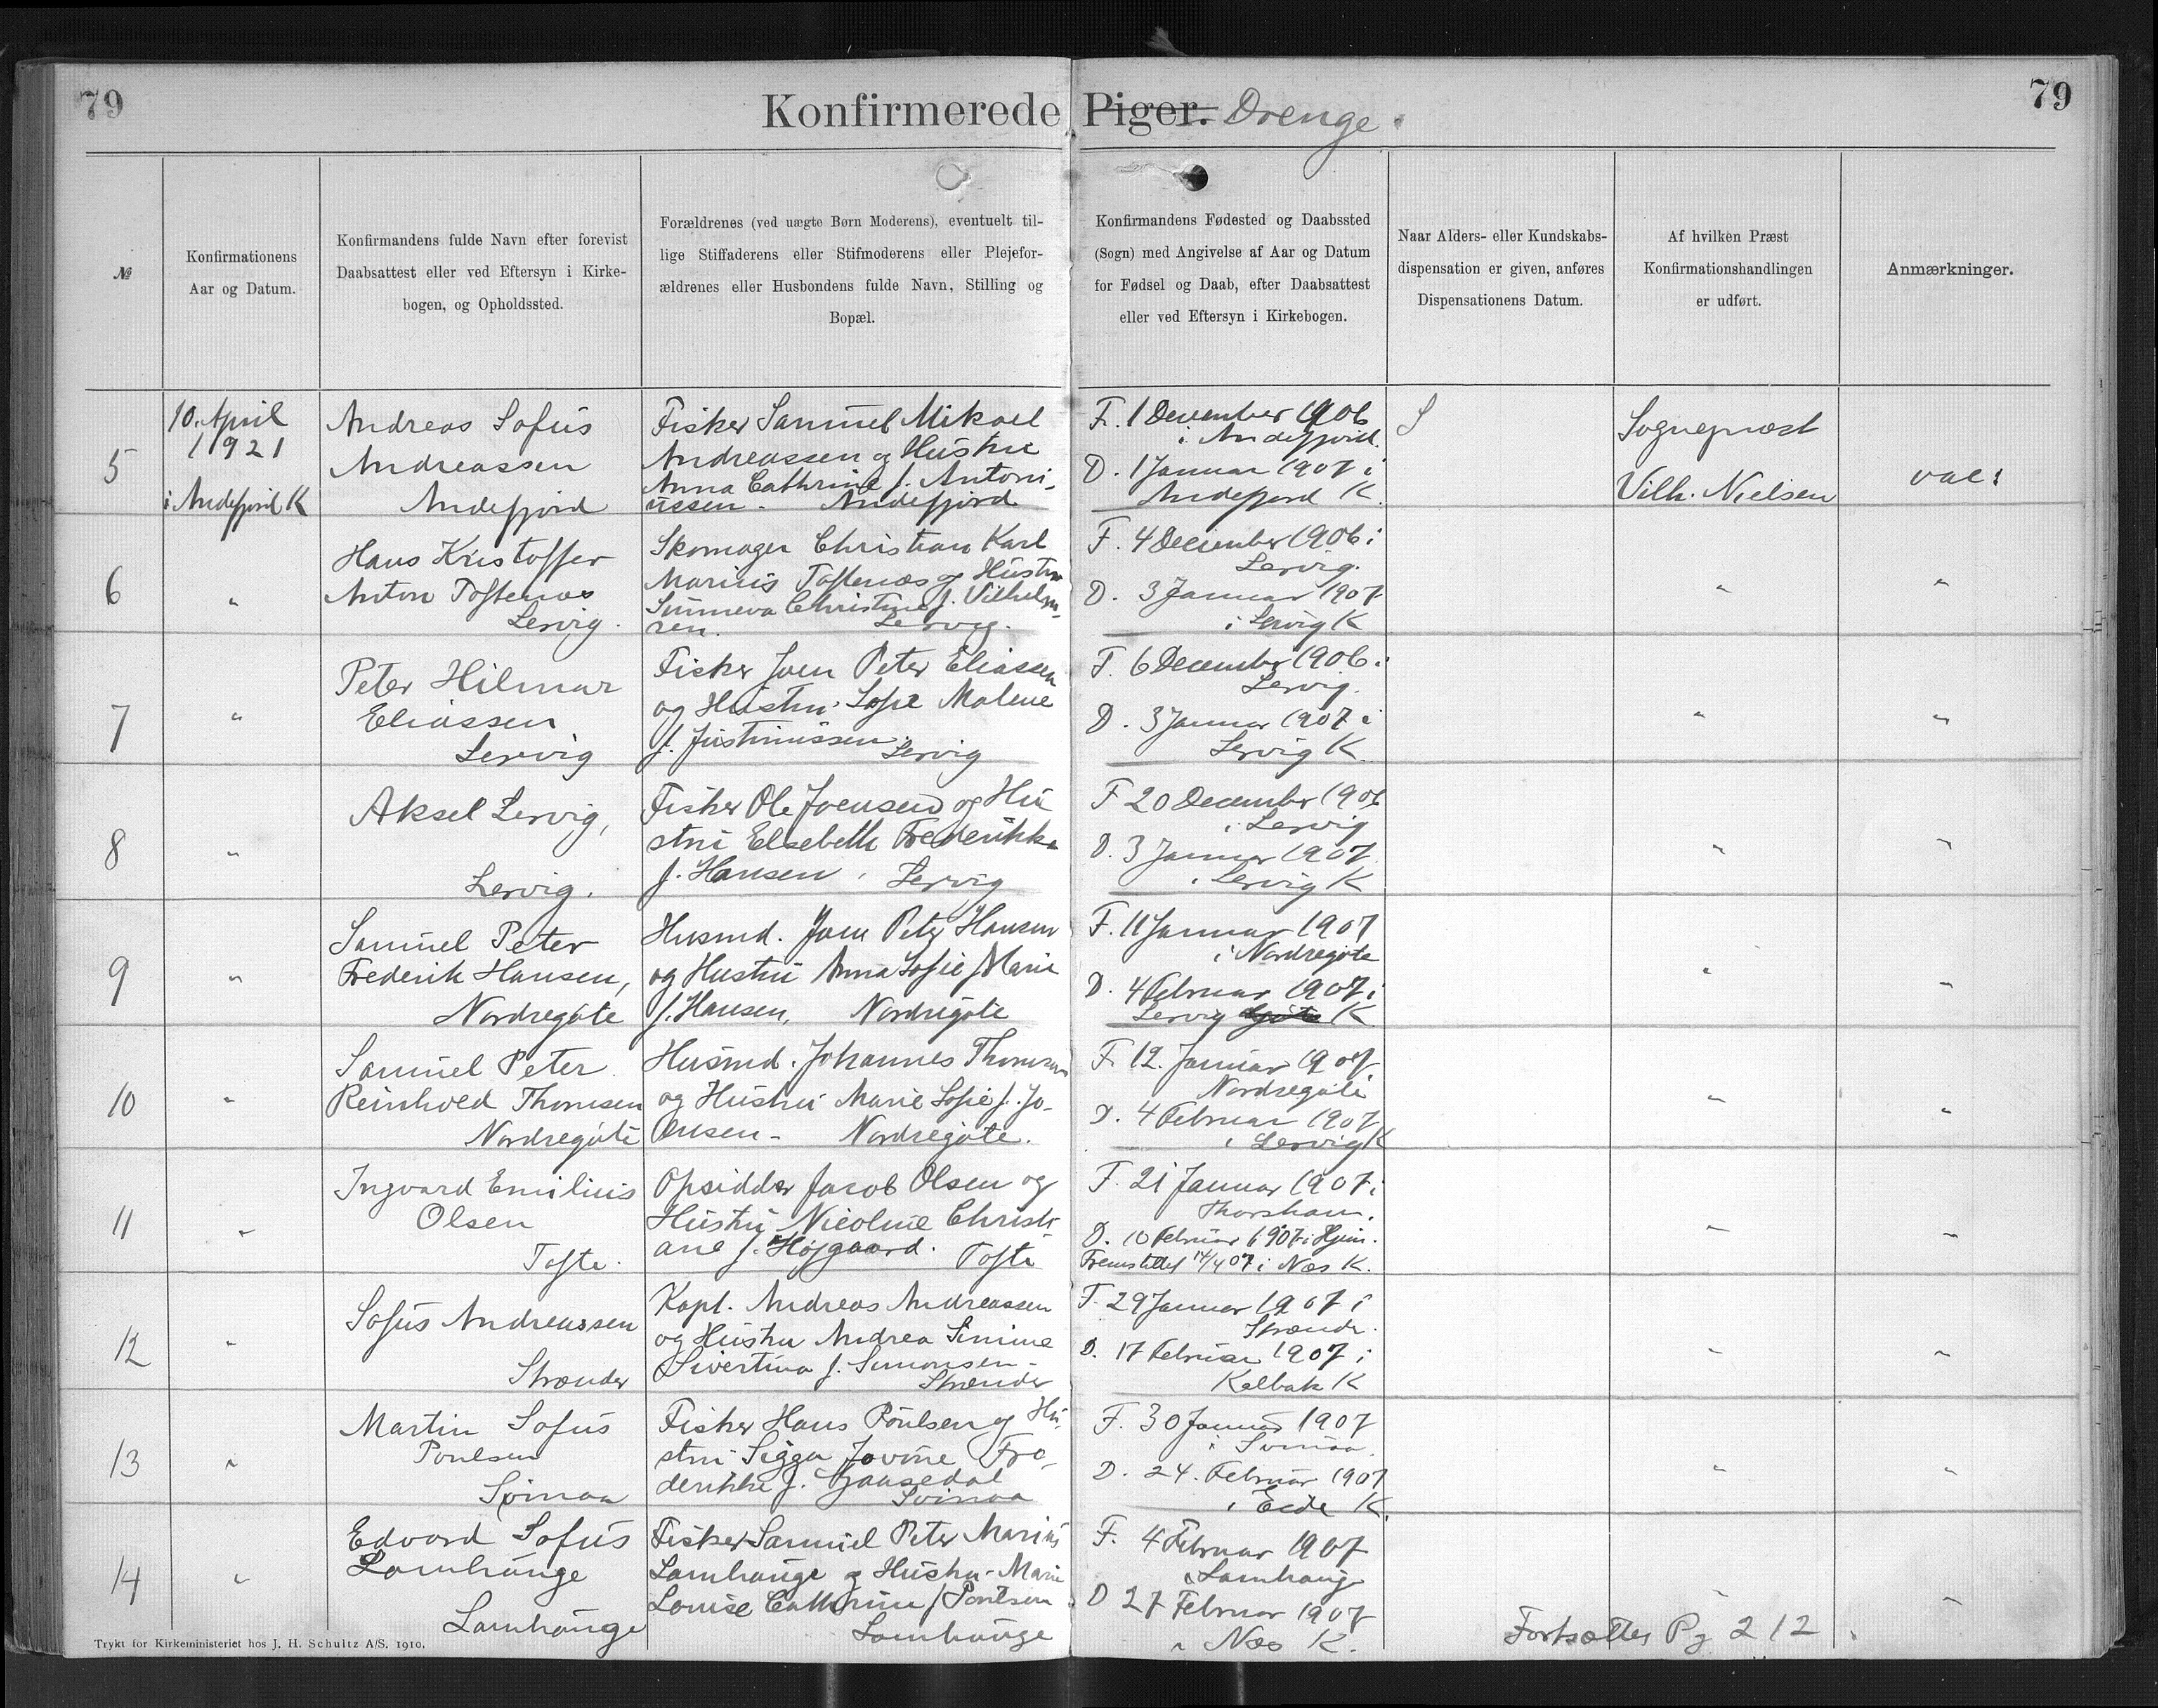 79
Konfirmerede Piger. Drenge.
79
№
Konfirmationens
Aar og Datum.
Konfirmandens fulde Navn efter forevist
Daabsattest eller ved Eftersyn i Kirke-
bogen, og Opholdssted.
Forældrenes (ved uægte Børn Moderens), eventuelt til-
lige Stiffaderens eller Stifmoderens eller Plejefor-
ældrenes eller Husbondens fulde Navn, Stilling og
Bopæl.
Konfirmandens Fødested og Daabssted
(Sogn) med Angivelse af Aar og Datum
for Fødsel og Daab, efter Daabsattest
eller ved Eftersyn i Kirkebogen.
Naar Alders- eller Kundskabs-
dispensation er given, anføres
Dispensationens Datum.
Af hvilken Præst
Konfirmationshandlingen
er udført.
Anmærkninger.
5
10. April
1921
i Andefjord K
Andreas Sofus
Andreassen
Andefjord
Fisker Samuel Mikael
Andreassen og Hustru
Anna Cathrine f. Antoni-
ussen - Andefjord
F. 1 December 1906
i Andefjord.
D. 1 Januar 1907 i
Andefjord K.
Sognepræst
Vilh. Nielsen
vac:
6
"
Hans Kristoffer
Anton Toftenæs
Lervig.
Skomager Christian Karl
Marius Toftenæs og Hustru
Sunneva Christine f. Vilhelm-
sen. Lervig.
F. 4 December 1906 i
Lervig.
D. 3 Januar 1907
i Lervig K
"
"
7
"
Peter Hilmar
Eliassen
Lervig
Fisker Joen Peter Eliassen
og Hustru Sofie Malene
f. Justinussen. Lervig
F. 6 December 1906 i
Lervig.
D. 3 Januar 1907 i
Lervig K.
"
"
8
"
Aksel Lervig,
Lervig.
Fisker Ole Joensen og Hu
stru Elsebeth Frederikke
f. Hansen, Lervig
F 20 December 1906
i Lervig
D. 3 Januar 1907
i Lervig K
"
"
9
"
Samuel Peter
Frederik Hansen,
Nordregøte
Husmd. Joen Peter Hansen
og Hustru Anna Sofie Marie
f. Hansen, Nordregøte
F. 11 Januar 1907
i Nordregøte
D. 4 Februar 1907 i
Lervig K
"
"
10
"
Samuel Peter
Reinhold Thomsen
Nordregøte
Husmd. Johannes Thomsen
og Hustru Marie Sofie f. Jo-
ensen - Nordregøte.
F. 12. Januar 1907
Nordregøte
D. 4 Februar 1907
i Lervig K
"
"
11
"
Ingvard Emilius
Olsen
Tofte.
Opsidder Jacob Olsen og
Hustru Nicoline Christi-
ane f. Højgaard. Tofte
F. 21 Januar 1907 i
Thorshavn.
D. 10 Februar 1907 i Hjem.
Fremstillet 14/4 07 i Næs K.
"
"
12
"
Sofus Andreassen
Strænder
Kapt. Andreas Andreassen
og Hustru Andrea Simine
Sivertina f. Simonsen -
Strænder
F. 29 Januar 1907 i
Strænder.
D. 17 Februar 1907 i
Kalbak K
"
"
13
"
Martin Sofus
Poulsen
Svinaa
Fisker Hans Poulsen og Hu-
stru Sigga Jovine Fre-
derikke f. Gaasedal
Svinaa
F. 30 Januar 1907
i Svinaa.
D. 24. Februar 1907
i Eide K.
"
"
14
"
Edvard Sofus
Lamhauge
Lamhauge
Fisker Samuel Peter Marius
Lamhauge og Hustru - Marie
Louise Cathrine f Poulsen.
Lamhauge
F. 4 Februar 1907
i Lamhauge
D 27 Februar 1907
i Næs K.
"
"
Fortsættes Pg 212.
Trykt for Kirkeministeriet hos J. H. Schultz A/S. 1910.